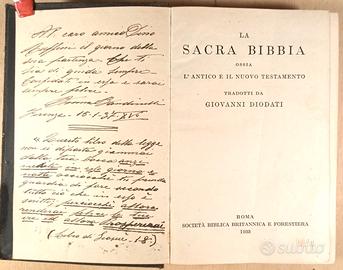 Al caro amico Dino
il giorno della
sua partenza. Che ti
sia di guida sempre.
Confidati in esso e sarai
sempre felice.
Firenze - 15-1-37 XV°
"Questo libro della legge
non si diparta giammai
dalla tua bocca anzi
medita in esso giorno e
notte acciocchè tu prenda
guardia di fare secondo
tutto ciò che in esso è
scritto, perciocchè allora
renderai felice la tua
via ed allora prospererai"
(Libro di Giosuè. 1-8)
LA
SACRA BIBBIA
OSSIA
L'ANTICO E IL NUOVO TESTAMENTO
TRADOTTI DA
GIOVANNI DIODATI
ROMA
SOCIETÀ BIBLICA BRITANNICA E FORESTIERA
1933
subito